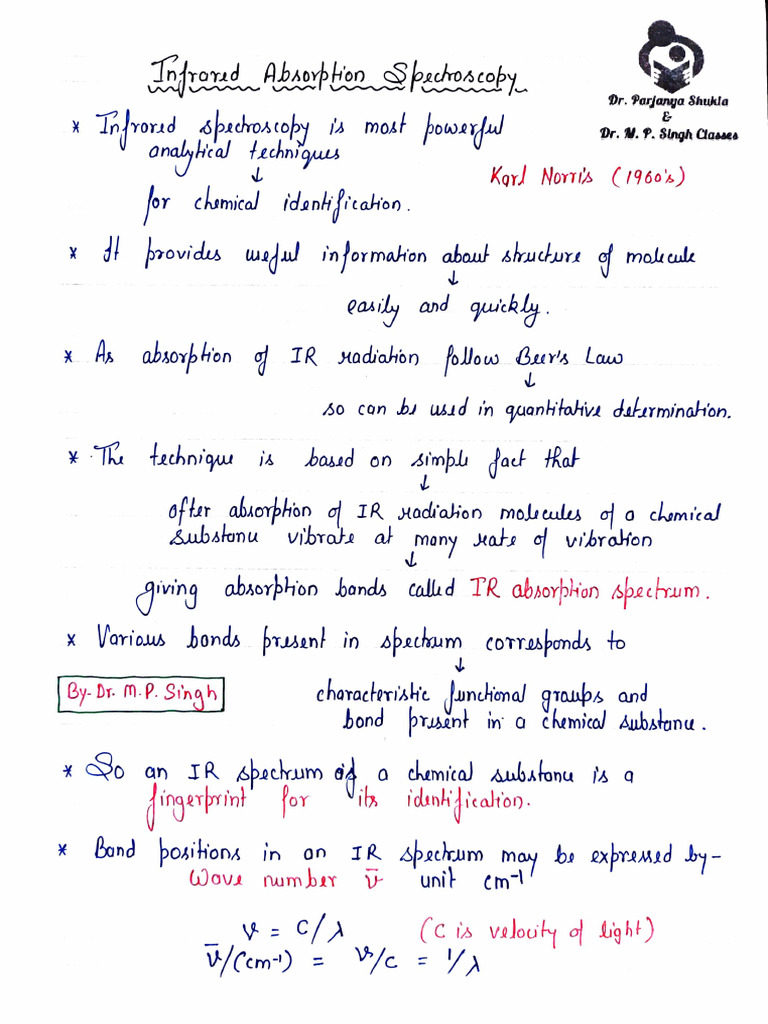 Infrared Absorption Spectroscopy
Dr. Parjanya Shukla
&
Dr. M. P. Singh Classes
* Infrared spectroscopy is most powerful
analytical techniques
↓
Karl Norris (1960's)
for chemical identification.
* It provides useful information about structure of molecule
↓
easily and quickly.
* As absorption of IR radiation follow Beer's Law
↓
so can be used in quantitative determination.
* The technique is based on simple fact that
↓
after absorption of IR radiation molecules of a chemical
substance vibrate at many rate of vibration
↓
giving absorption bands called IR absorption spectrum.
* Various bands present in spectrum corresponds to
↓
By- Dr. M.P. Singh
characteristic functional groups and
bond present in a chemical substance.
* So an IR spectrum of a chemical substance is a
fingerprint for its identification.
* Band positions in an IR spectrum may be expressed by-
Wave number ν̅ unit cm⁻¹
ν = C/λ (C is velocity of light)
ν̅/(cm⁻¹) = ν/c = 1/λ